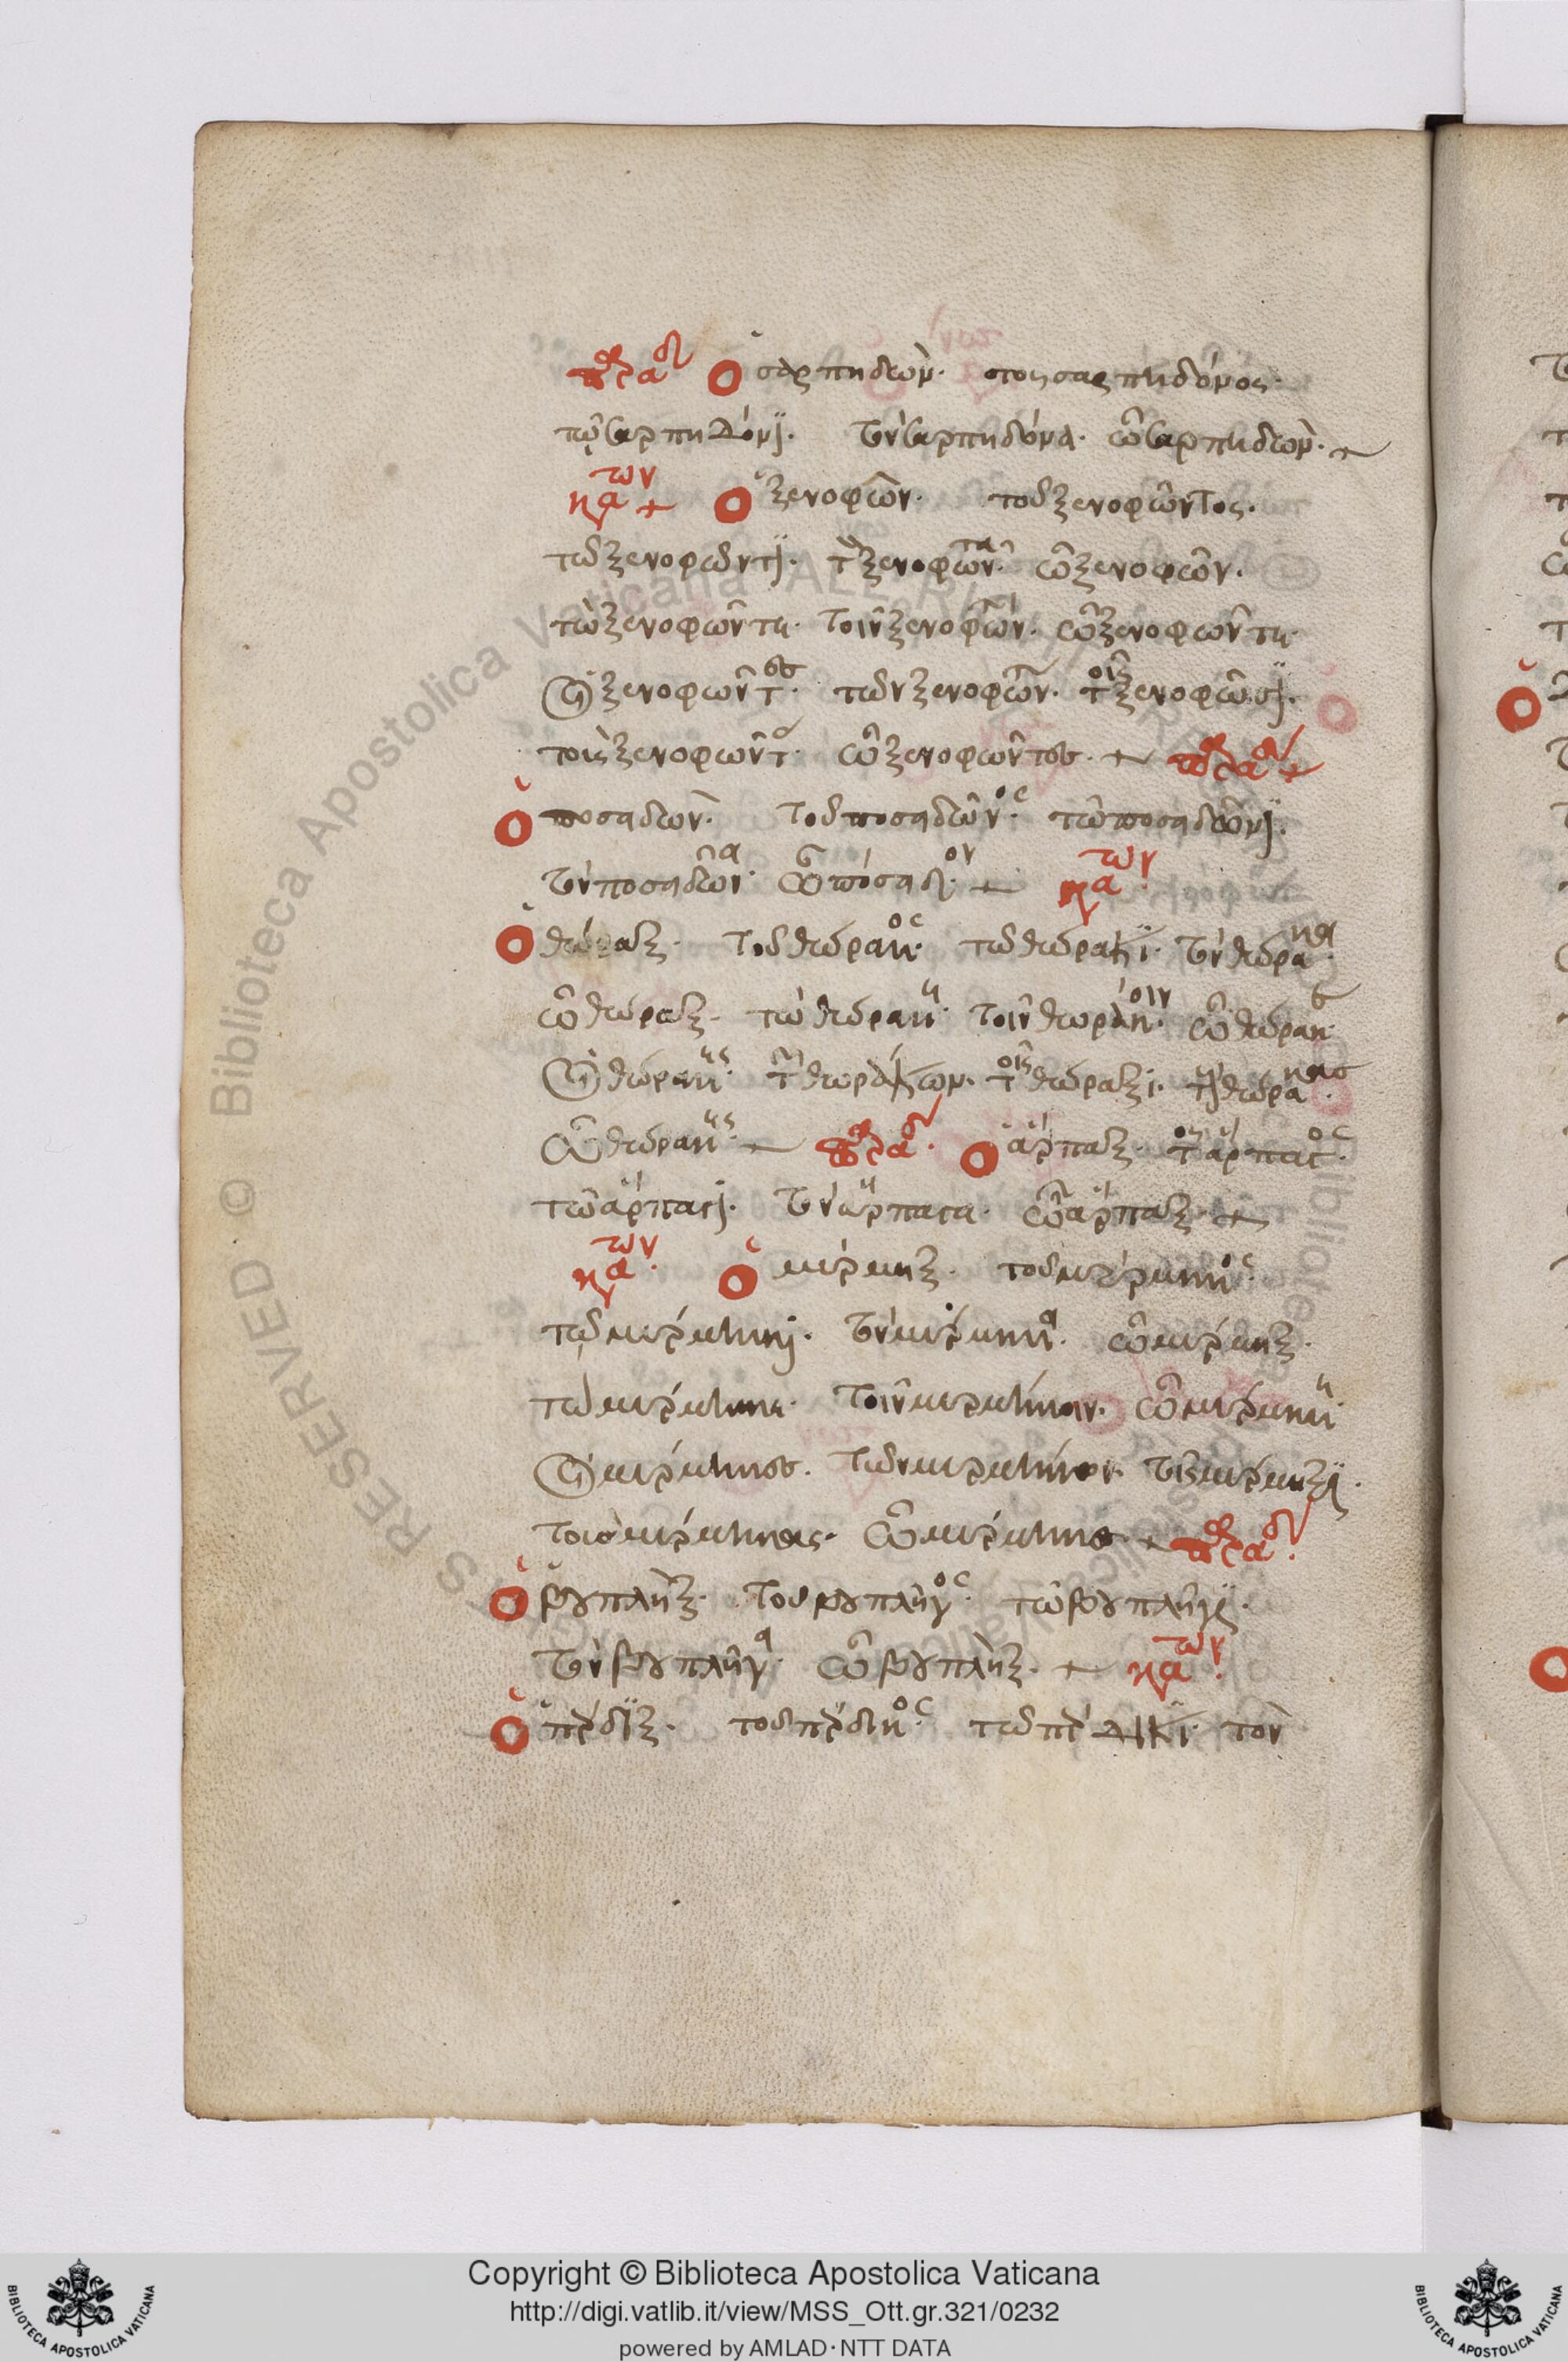 ὁ σαρπηδών. τοῦ σαρπηδόνος.
τῷ σαρπηδόνϊ. τὸν σαρπηδόνα. ὦ σαρπηδών.
των
κα ὁ ξενοφῶν. τοῦ ξενοφῶντος.
τῶ ξενοφῶντϊ. τὸν ξενοφῶντα. ὦ ξενοφῶν.
τὼ ξενοφῶντε. τοῖν ξενοφώντοιν. ὦ ξενοφῶντε.
οἱ ξενοφῶντες. τῶν ξενοφώντων. τοῖς ξενοφῶσϊ.
τοὺς ξενοφῶντας. ὦ ξενοφῶντες.
ὁ ποσειδῶν. τοῦ ποσειδῶνος. τῶ ποσειδῶνϊ.
τὸν ποσειδῶνα. ὦ πόσειδον. κα των
ὁ θώραξ. τοῦ θώρακος. τῶ θώρακϊ. τὸν θώρακα.
ὦ θώραξ. τὼ θώρακε. τοῖν θωράκοιν. ὦ θώρακε.
οἱ θώρακες. τῶν θωράκων. τοῖς θώραξι. τοὺς θώρακας.
ὦ θώρακες. ὁ ἅρπαξ. τοῦ ἅρπαγος.
τῶ ἅρπαγϊ. τὸν ἅρπαγα. ὦ ἅρπαξ.
κα των. ὁ μύρμηξ. τοῦ μύρμηκος.
τῶ μύρμηκϊ. τὸν μύρμηκα. ὦ μύρμηξ.
τὼ μύρμηκε. τοῖν μυρμήκοιν. ὦ μύρμηκε.
οἱ μύρμηκες. τῶν μυρμήκων. τοῖς μύρμηξϊ.
τοὺς μύρμηκας. ὦ μύρμηκες.
ὁ βουπλὴξ. τοῦ βουπλῆγος. τῶ βουπλῆγϊ.
τὸν βουπλῆγα. ὦ βουπλὴξ. κα των.
ὁ πέρδιξ. τοῦ πέρδικος. τῶ πέρδικϊ. τὸν
Copyright © Biblioteca Apostolica Vaticana
http://digi.vatlib.it/view/MSS_Ott.gr.321/0232
powered by AMLAD·NTT DATA
BIBLIOTECA APOSTOLICA VATICANA
BIBLIOTECA APOSTOLICA VATICANA